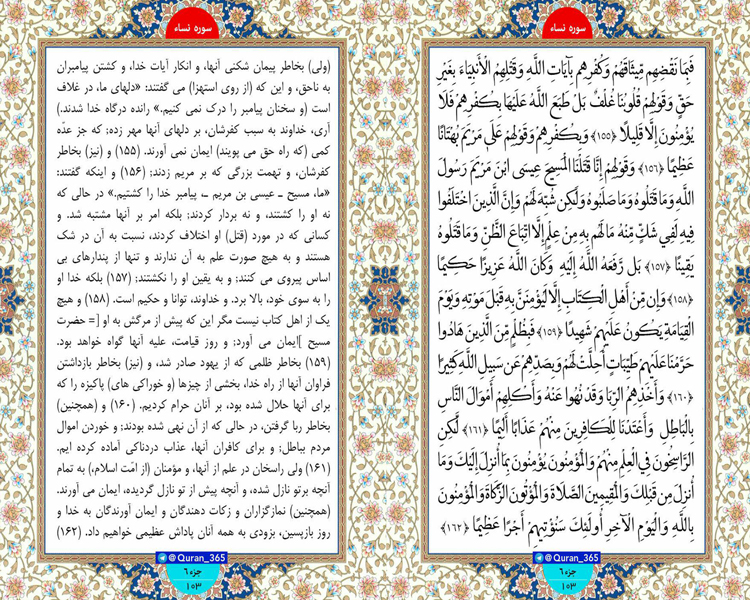 سوره نساء
فَبِمَا نَقْضِهِم مِّيثَاقَهُمْ وَكُفْرِهِم بِآيَاتِ اللَّهِ وَقَتْلِهِمُ الْأَنبِيَاءَ بِغَيْرِ
حَقٍّ وَقَوْلِهِمْ قُلُوبُنَا غُلْفٌ بَلْ طَبَعَ اللَّهُ عَلَيْهَا بِكُفْرِهِمْ فَلَا
يُؤْمِنُونَ إِلَّا قَلِيلًا ﴿۱۵۵﴾ وَبِكُفْرِهِمْ وَقَوْلِهِمْ عَلَى مَرْيَمَ بُهْتَانًا
عَظِيمًا ﴿۱۵۶﴾ وَقَوْلِهِمْ إِنَّا قَتَلْنَا الْمَسِيحَ عِيسَى ابْنَ مَرْيَمَ رَسُولَ
اللَّهِ وَمَا قَتَلُوهُ وَمَا صَلَبُوهُ وَلَكِن شُبِّهَ لَهُمْ وَإِنَّ الَّذِينَ اخْتَلَفُوا
فِيهِ لَفِي شَكٍّ مِّنْهُ مَا لَهُم بِهِ مِنْ عِلْمٍ إِلَّا اتِّبَاعَ الظَّنِّ وَمَا قَتَلُوهُ
يَقِينًا ﴿۱۵۷﴾ بَل رَّفَعَهُ اللَّهُ إِلَيْهِ وَكَانَ اللَّهُ عَزِيزًا حَكِيمًا
﴿۱۵۸﴾ وَإِن مِّنْ أَهْلِ الْكِتَابِ إِلَّا لَيُؤْمِنَنَّ بِهِ قَبْلَ مَوْتِهِ وَيَوْمَ
الْقِيَامَةِ يَكُونُ عَلَيْهِمْ شَهِيدًا ﴿۱۵۹﴾ فَبِظُلْمٍ مِّنَ الَّذِينَ هَادُوا
حَرَّمْنَا عَلَيْهِمْ طَيِّبَاتٍ أُحِلَّتْ لَهُمْ وَبِصَدِّهِمْ عَن سَبِيلِ اللَّهِ كَثِيرًا
﴿۱۶۰﴾ وَأَخْذِهِمُ الرِّبَا وَقَدْ نُهُوا عَنْهُ وَأَكْلِهِمْ أَمْوَالَ النَّاسِ
بِالْبَاطِلِ وَأَعْتَدْنَا لِلْكَافِرِينَ مِنْهُمْ عَذَابًا أَلِيمًا ﴿۱۶۱﴾ لَّكِنِ
الرَّاسِخُونَ فِي الْعِلْمِ مِنْهُمْ وَالْمُؤْمِنُونَ يُؤْمِنُونَ بِمَا أُنزِلَ إِلَيْكَ وَمَا
أُنزِلَ مِن قَبْلِكَ وَالْمُقِيمِينَ الصَّلَاةَ وَالْمُؤْتُونَ الزَّكَاةَ وَالْمُؤْمِنُونَ
بِاللَّهِ وَالْيَوْمِ الْآخِرِ أُولَئِكَ سَنُؤْتِيهِمْ أَجْرًا عَظِيمًا ﴿۱۶۲﴾
@Quran_365
جزء ۶
۱۰۳
سوره نساء
(ولی) بخاطر پیمان شکنی آنها، و انکار آیات خدا، و کشتن پیامبران
به ناحق، و این که (از روی استهزا) می گفتند: «دلهای ما، در غلاف
است (و سخنان پیامبر را درک نمی کنیم.» رانده درگاه خدا شدند.)
آری، خداوند به سبب کفرشان، بر دلهای آنها مهر زده؛ که جز عدّه
کمی (که راه حق می پویند) ایمان نمی آورند. (۱۵۵) و (نیز) بخاطر
کفرشان، و تهمت بزرگی که بر مریم زدند; (۱۵۶) و اینکه گفتند:
«ما، مسیح ـ عیسی بن مریم ـ، پیامبر خدا را کشتیم.» در حالی که
نه او را کشتند، و نه بردار کردند; بلکه امر بر آنها مشتبه شد. و
کسانی که در مورد (قتل) او اختلاف کردند، نسبت به آن در شک
هستند و به هیچ صورت علم به آن ندارند و تنها از پندارهای بی
اساس پیروی می کنند; و به یقین او را نکشتند; (۱۵۷) بلکه خدا او
را به سوی خود، بالا برد. و خداوند، توانا و حکیم است. (۱۵۸) و هیچ
یک از اهل کتاب نیست مگر این که پیش از مرگش به او [= حضرت
مسیح ]ایمان می آورد; و روز قیامت، علیه آنها گواه خواهد بود.
(۱۵۹) بخاطر ظلمی که از یهود صادر شد، و (نیز) بخاطر بازداشتن
فراوان آنها از راه خدا، بخشی از چیزها (و خوراکی های) پاکیزه را که
برای آنها حلال شده بود، بر آنان حرام کردیم. (۱۶۰) و (همچنین)
بخاطر ربا گرفتن، در حالی که از آن نهی شده بودند; و خوردن اموال
مردم بباطل; و برای کافران آنها، عذاب دردناکی آماده کرده ایم.
(۱۶۱) ولی راسخان در علم از آنها، و مؤمنان (از امّت اسلام،) به تمام
آنچه برتو نازل شده، و آنچه پیش از تو نازل گردیده، ایمان می آورند.
(همچنین) نمازگزاران و زکات دهندگان و ایمان آورندگان به خدا و
روز بازپسین، بزودی به همه آنان پاداش عظیمی خواهیم داد. (۱۶۲)
@Quran_365
جزء ۶
۱۰۳